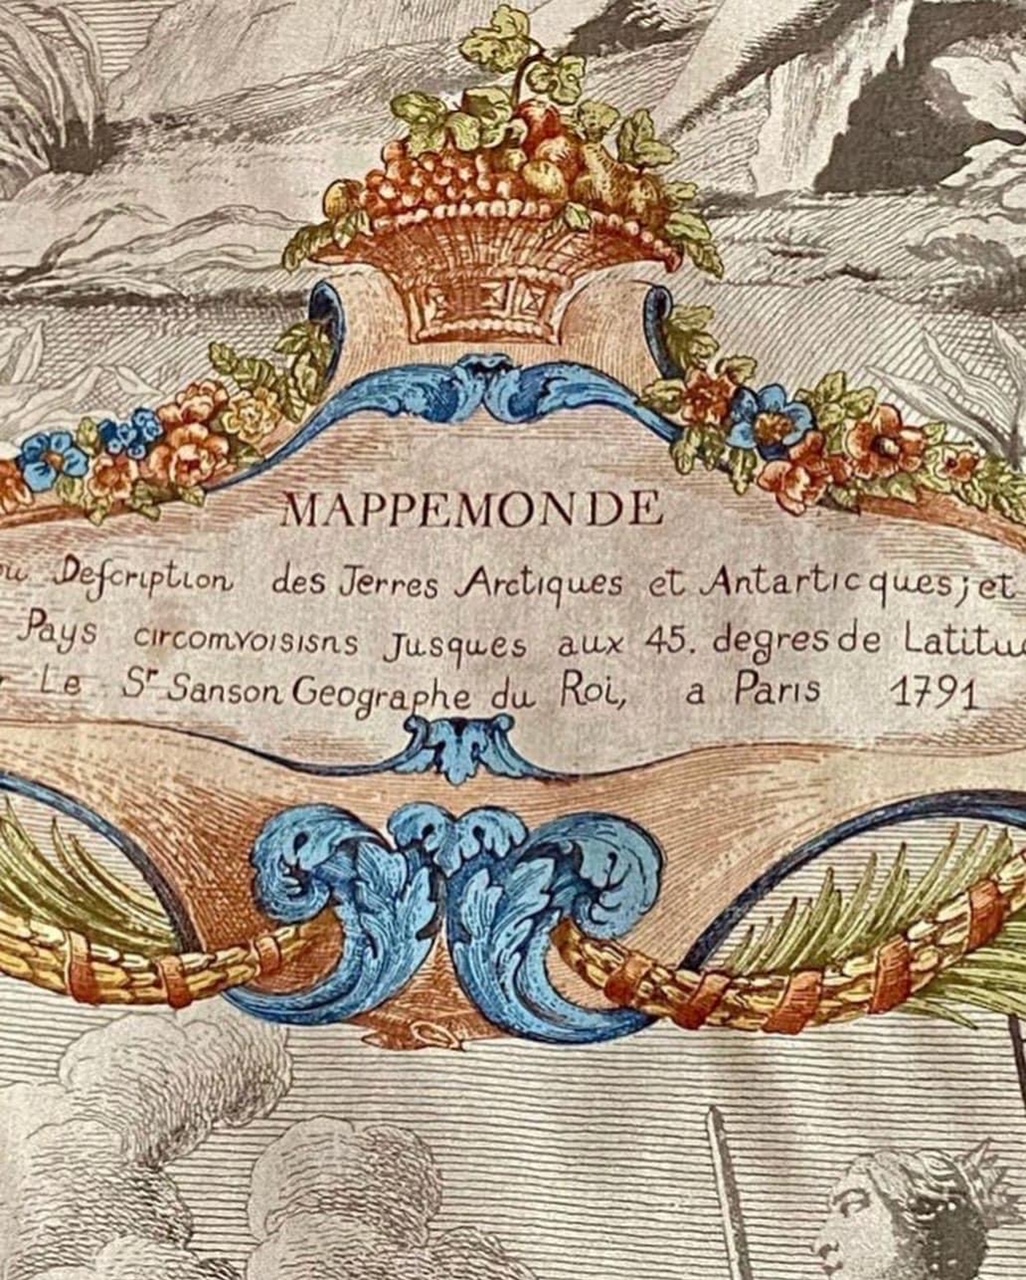 MAPPEMONDE
ou Deſcription des Terres Arctiques et Antarticques; et
Pays circomvoisisns Jusques aux 45. degres de Latitu
Le Sr Sanson Geographe du Roi, a Paris 1791